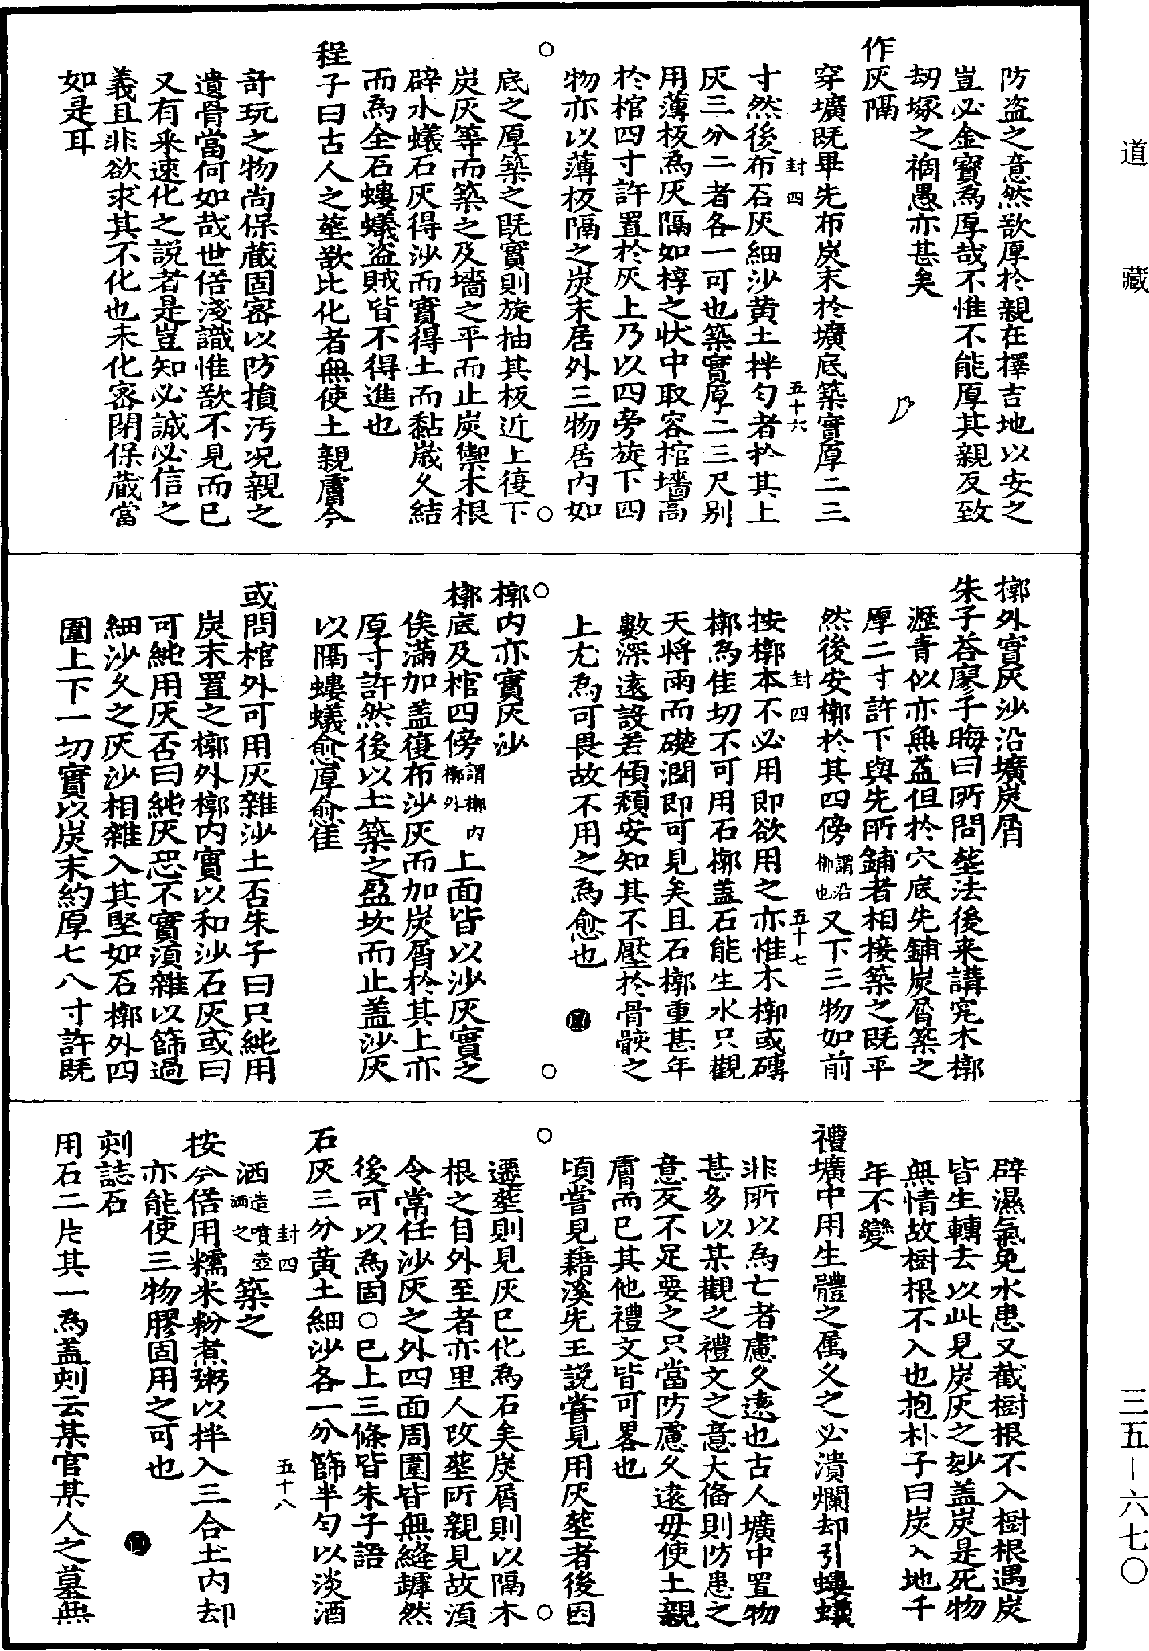 道藏
防盜之意然欲厚於親在擇吉地以安之
豈必金寶為厚哉不惟不能厚其親反致
刼塚之禍愚亦甚矣
作灰隔
穿壙既畢先布炭末於壙底築實厚二三
封四
五十六
寸然後布石灰細沙黄土拌勻者於其上
灰三分二者各一可也築實厚二三尺别
用薄板為灰隔如椁之状中取容棺墻高
於棺四寸許置於灰上乃以四旁旋下四
物亦以薄板隔之炭末居外三物居内如
底之厚築之既實則旋抽其板近上復下
炭灰等而築之及墻之平而止炭禦木根
辟水蟻石灰得沙而實得土而黏嵗久結
而為全石螻蟻盗賊皆不得進也
程子曰古人之塟欲比化者無使土親膚今
竒玩之物尚保藏固密以防損汚况親之
遺骨當何如哉世俗淺識惟欲不見而已
又有求速化之說者是豈知必誠必信之
義且非欲求其不化也未化密閉保藏當
如是耳
槨外實灰沙沿壙炭屑
朱子荅廖子晦曰所問塟法後来講究木槨
瀝青似亦無益但於穴底先鋪炭屑築之
厚二寸許下與先所鋪者相接築之既平
然後安槨於其四傍謂沿槨也又下三物如前
封四
五十七
按槨本不必用即欲用之亦惟木槨或磚
槨為佳切不可用石槨盖石能生水只觀
天將雨而礎潤即可見矣且石槨重甚年
數深遠設若傾頽安知其不壓於骨骸之
上尤為可畏故不用之為愈也
槨内亦實灰沙
槨底及棺四傍謂槨内槨外上面皆以沙灰實之
俟滿加盖復布沙灰而加炭屑於其上亦
厚寸許然後以土築之盈坎而止盖沙灰
以隔螻蟻愈厚愈佳
或問棺外可用灰雜沙土否朱子曰只純用
炭末置之槨外槨内實以和沙石灰或曰
可純用灰否曰純灰恐不實湏雜以篩過
細沙久之灰沙相雜入其堅如石槨外四
圍上下一切實以炭末約厚七八寸許既
辟濕氣免水患又截樹根不入樹根遇炭
皆生轉去以此見炭灰之妙盖炭是死物
無情故樹根不入也抱朴子曰炭入地千
年不變
禮壙中用生體之属久之必潰爛却引螻蟻
非所以為亡者慮久逺也古人壙中置物
甚多以某觀之禮文之意大備則防患之
意反不足要之只當防慮久遠毋使土親
膚而已其他禮文皆可畧也
頃嘗見籍溪先王說嘗見用灰塟者後因
遷塟則見灰已化為石矣炭屑則以隔木
根之自外至者亦里人改塟所親見故湏
令常任沙灰之外四面周圍皆無縫罅然
後可以為固○已上三條皆朱子語
石灰三分黄土細沙各一分篩半勻以淡酒
封四
五十八
洒造噴壺洒之築之
按今俗用糯米粉煮粥以拌入三合土内却
亦能使三物膠固用之可也
刻誌石
用石二片其一為盖刻云某官某人之墓無
三五-六七〇